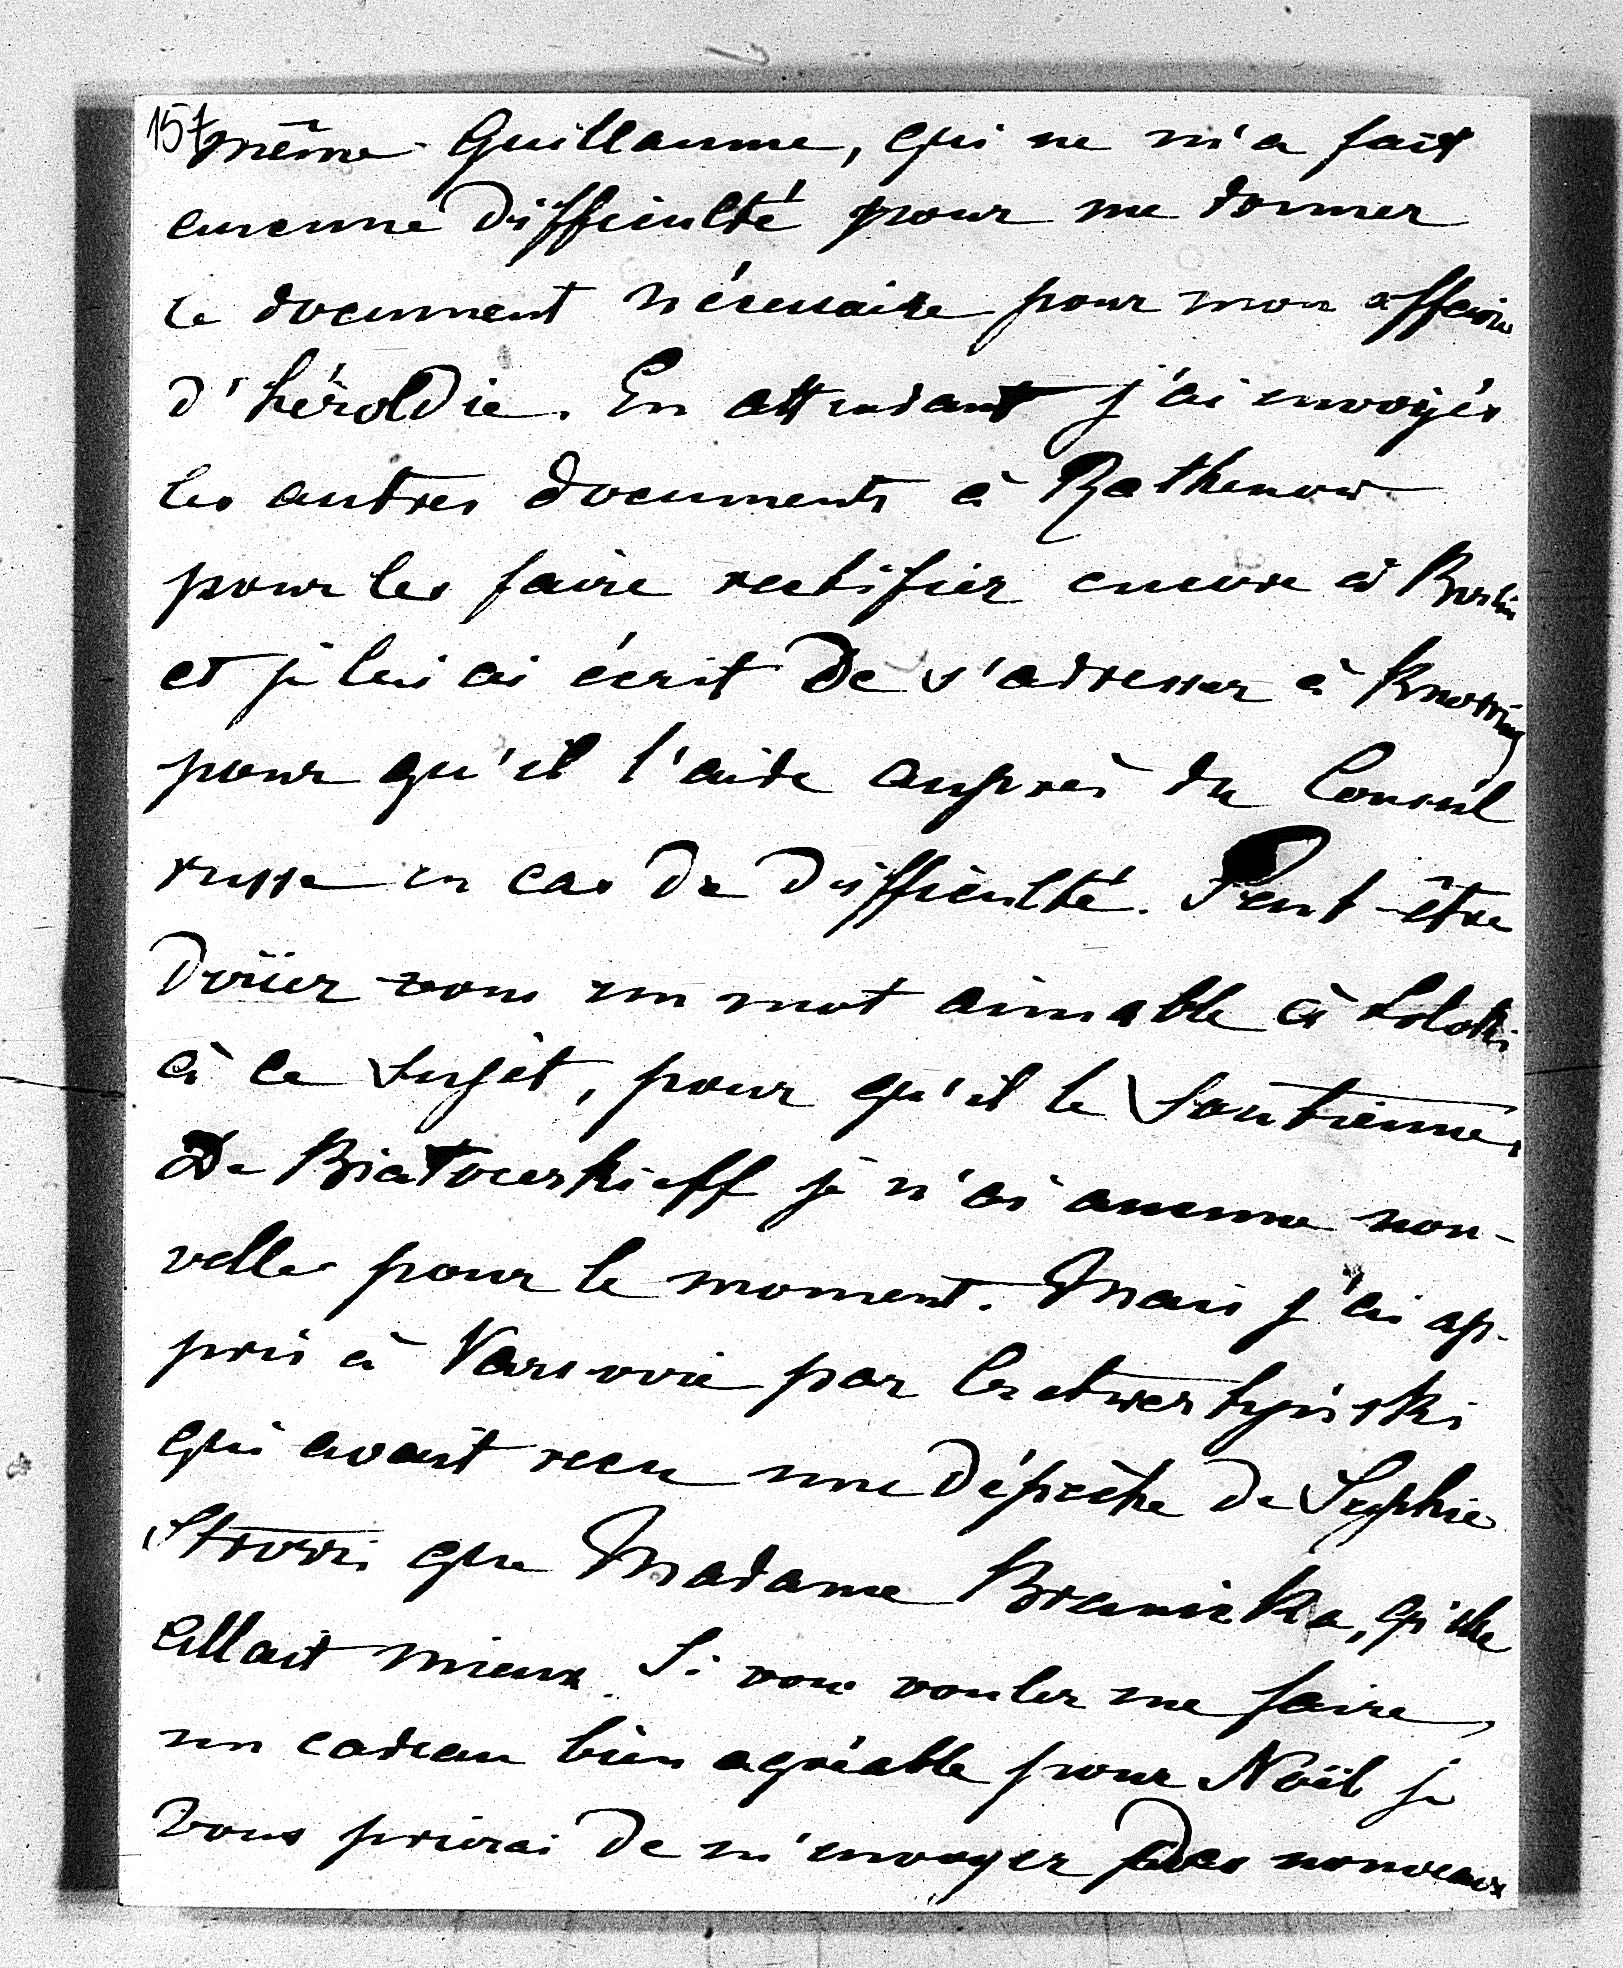 157
même Guillaume, qui ne m'a fait
aucune difficulté pour me donner
le document nécessaire pour mon affaire
d'héroldie. En attendant j'ai envoyés
les autres documents à Rathenow
pour les faire rectifier encore à Berlin
et je lui ai écrit de s'adresser à Knorring
pour qu'il l'aide auprès du Consul
russe en cas de difficulté. Peut-être
diriez vous un mot aimable à
à ce sujet, pour qu'il le soutienne.
De Białocerkieff je n'ai aucune nou-
velles pour le moment. Mais j'ai ap-
pris à Varsovie par Czetwertyński
qui avait reçu une dépêche de Sophie
Strozzi que Madame Branicka, qu'elle
allait mieux. Si vous voulez me faire
un cadeau bien agréable pour Noël je
vous prierai de m'envoyer des nouveaux